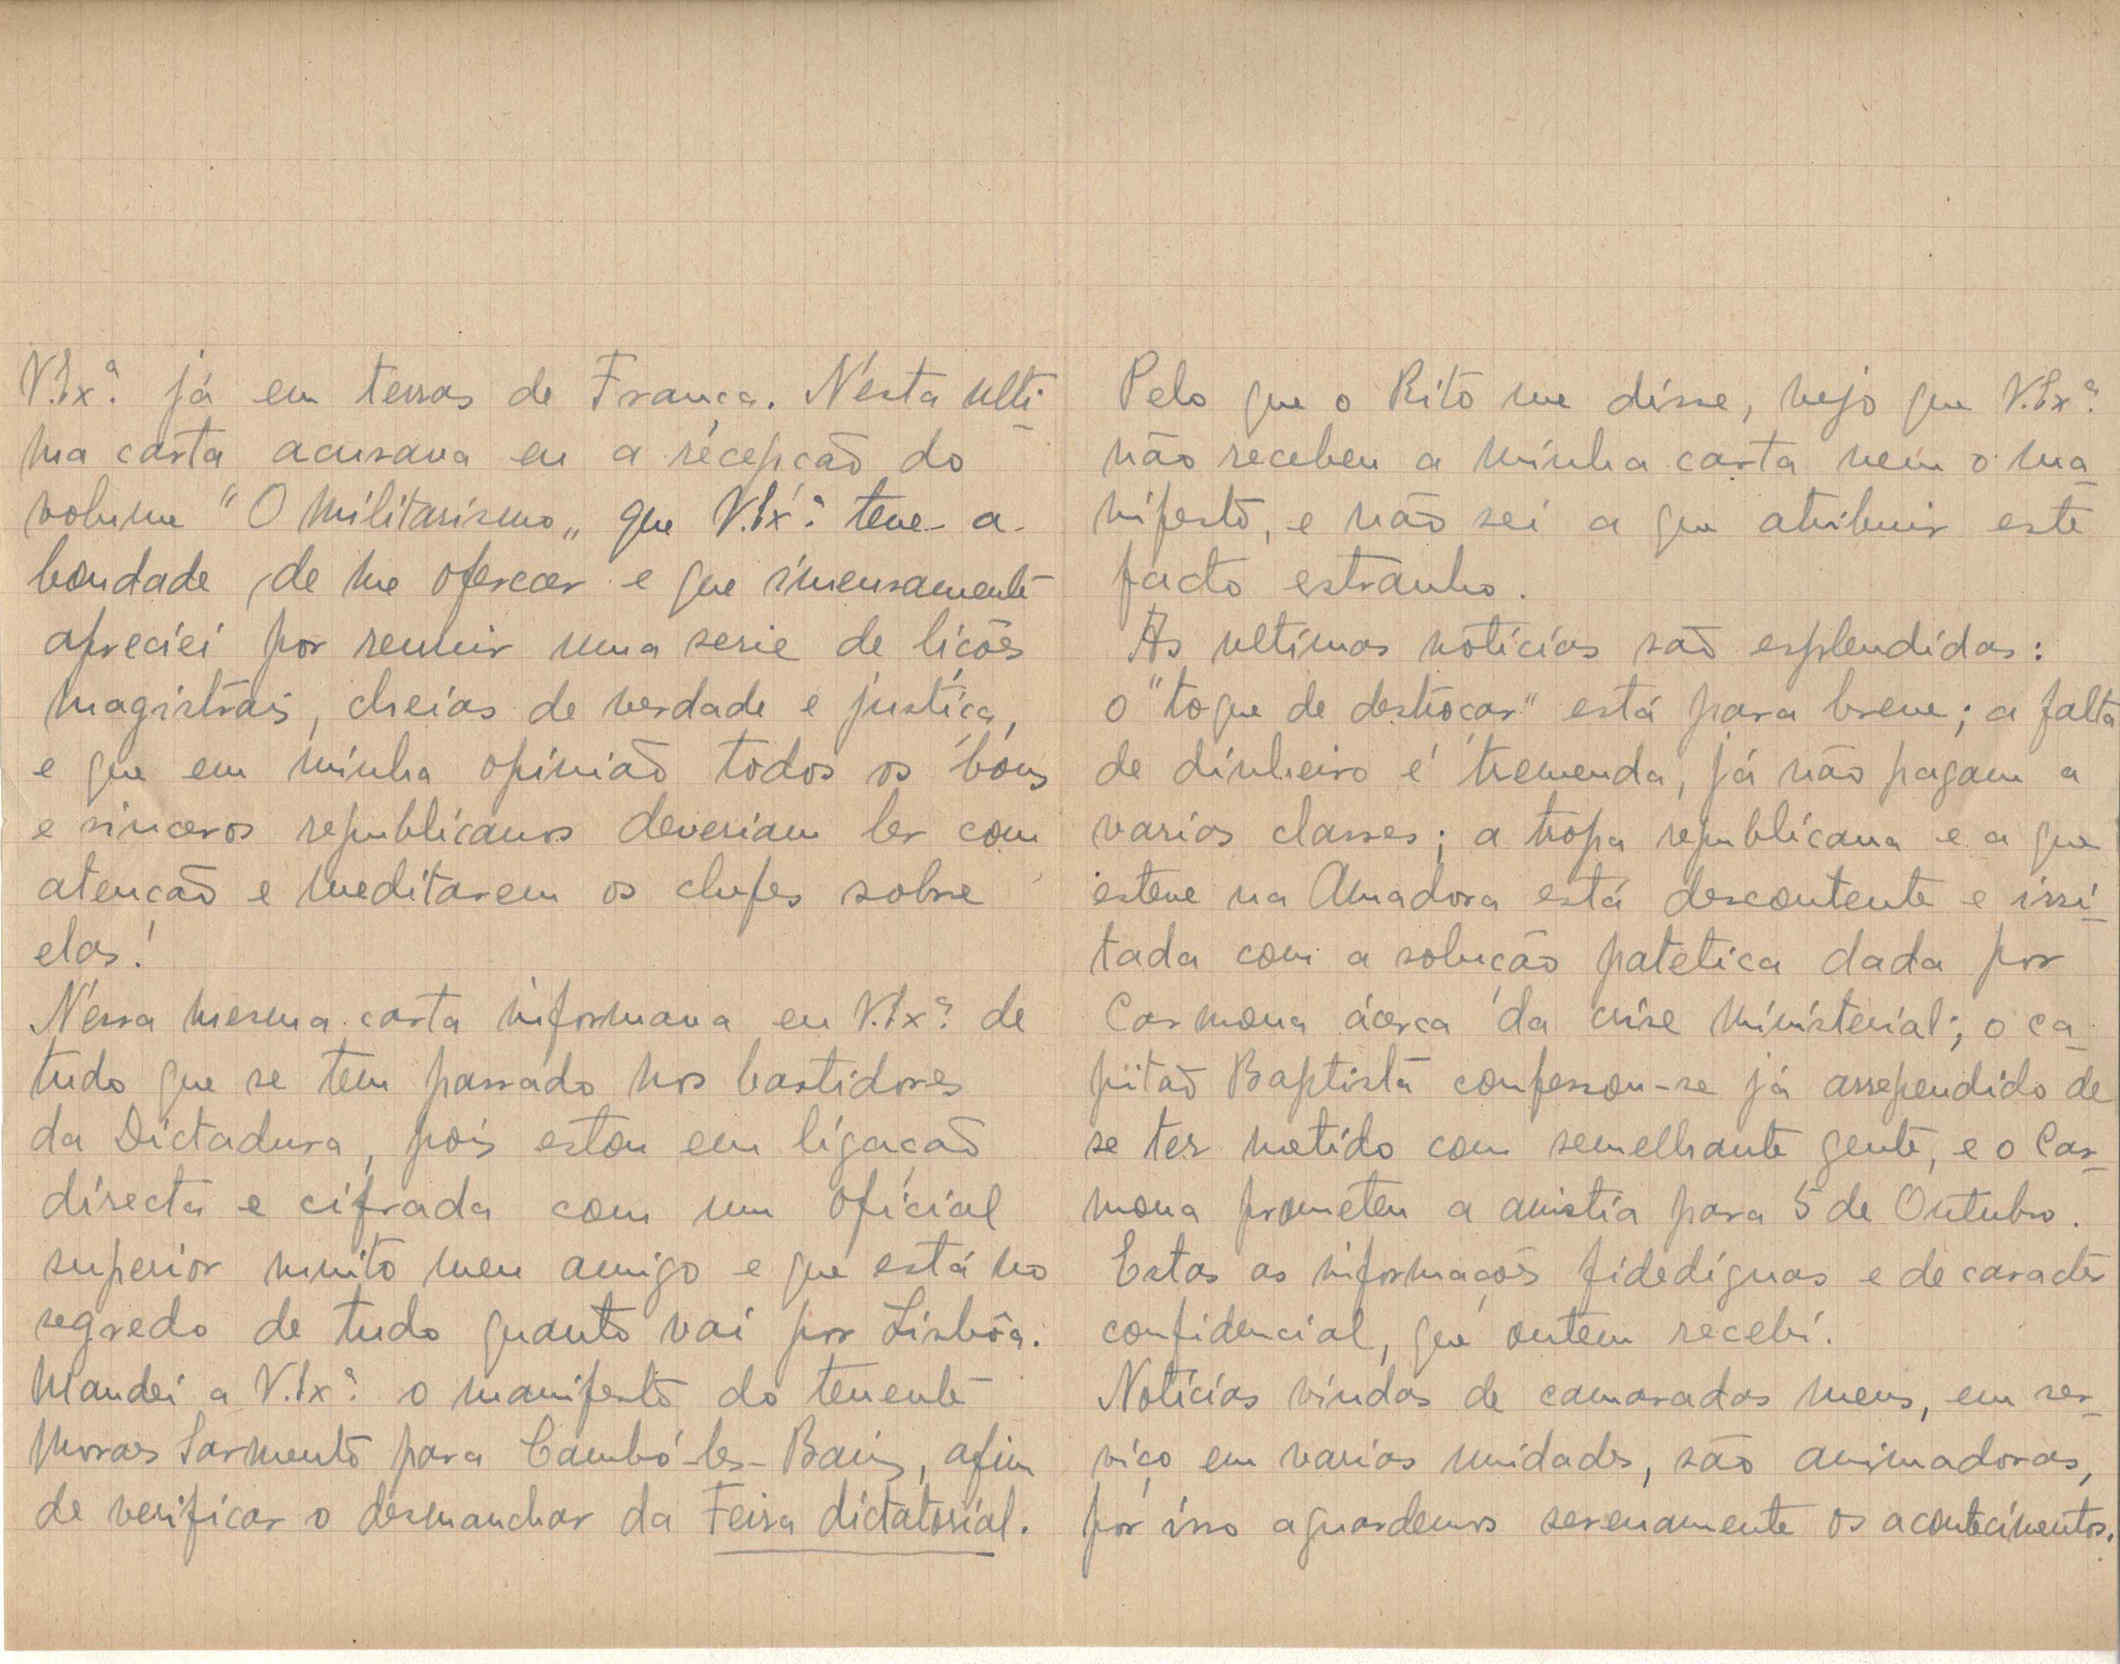 V. Ex.ª já em terras de França. Nésta ulti-
ma carta acusava eu a récepção do
volume "O Militarismo„ que V. Ex.ª teve a
bondade de me oferecer e que imensamente
apreciei por reunir uma serie de lições
magistrais, cheias de verdade e justiça,
e que em minha opinião todos os bons
e sinceros republicanos deveriam ler com
atenção e meditarem os chefes sobre
elas!
Néssa mesma carta informava eu V. Ex.ª de
tudo que se tem passado nos bastidores
da Dictadura, pois estou em ligação
directa e cifrada com um oficial
superior muito meu amigo e que está no
segredo de tudo quanto vai por Lisbôa.
Mandei a V. Ex.ª o manifesto do tenente
Moraes Sarmento para Cambó-les-Bains, afim
de verificar o desmanchar da Feira dictatorial.
Pelo que o Rito me disse, vejo que V. Ex.ª
não recebeu a minha carta nem o ma-
nifesto, e não sei a que atribuir este
facto estranho.
As ultimas noticias são esplendidas:
o "toque de destroçar" está para breve; a falta
de dinheiro é tremenda, já não pagam a
varias classes; a tropa republicana e a que
esteve na Amadora está descontente e irri-
tada com a solução patetica dada por
Carmona ácerca da crise ministerial; o ca-
pitão Baptista confessou-se já arrependido de
se ter metido com semelhante gente, e o Car-
mona prometeu a amistia para 5 de Outubro.
Estas as informações fidedignas e de caracter
confidencial, que ontem recebi.
Noticias vindas de camaradas meus, em ser-
viço em varias unidades, são animadoras,
por isso aguardemos serenamente os acontecimentos.